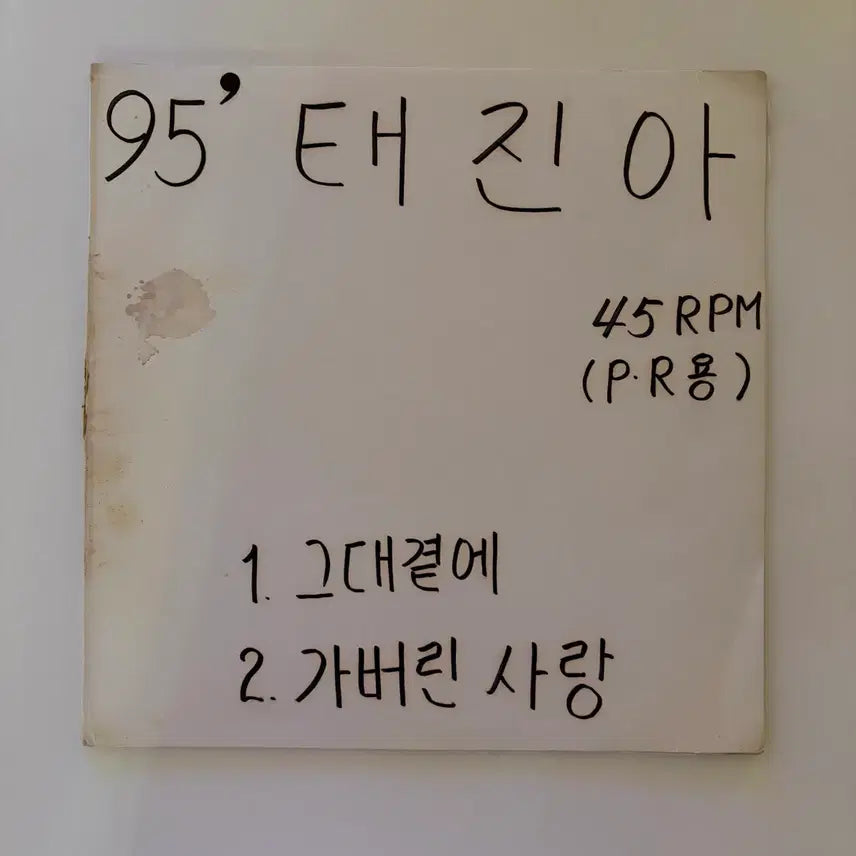 95' 태진아
45 RPM
(P·R용)
1. 그대곁에
2. 가버린 사랑